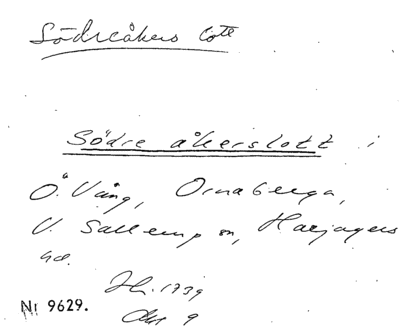 Södreåkers lott
Södre åkerslott i
Ö. Vång, Ornaberga,
V. Sallerup sn, Harjagers
hd.
1739
Akt 9
Nr 9629.